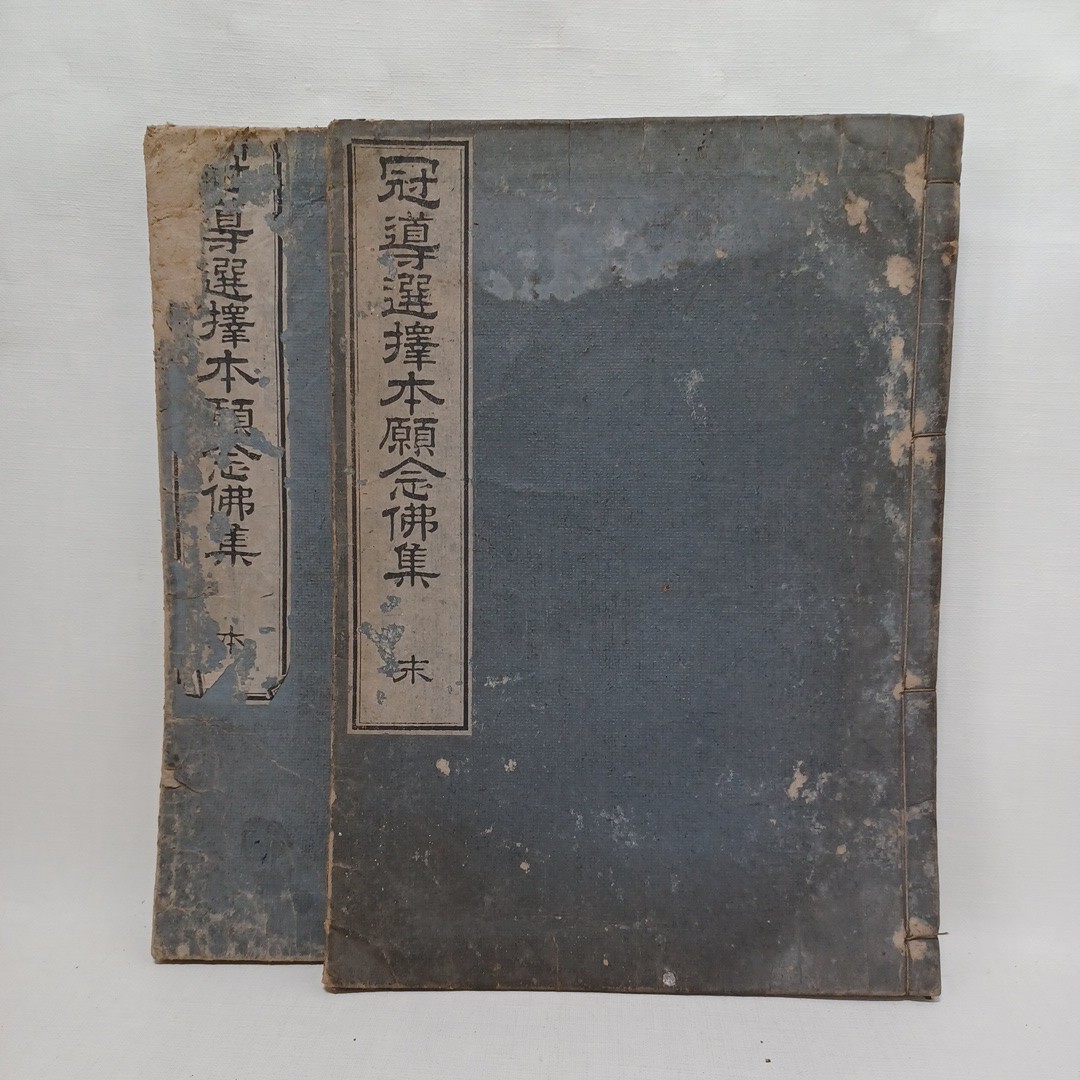 冠導選擇本願念佛集 末
導選擇本願念佛集 本